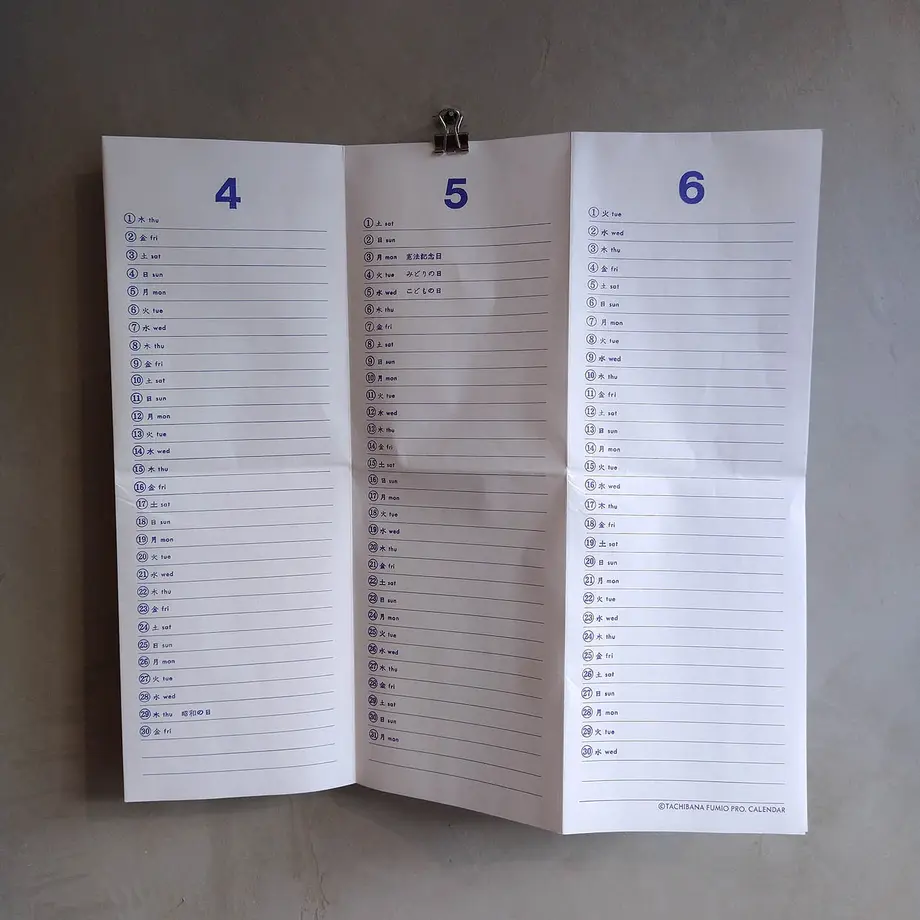 4
① 木 thu
② 金 fri
③ 土 sat
④ 日 sun
⑤ 月 mon
⑥ 火 tue
⑦ 水 wed
⑧ 木 thu
⑨ 金 fri
⑩ 土 sat
⑪ 日 sun
⑫ 月 mon
⑬ 火 tue
⑭ 水 wed
⑮ 木 thu
⑯ 金 fri
⑰ 土 sat
⑱ 日 sun
⑲ 月 mon
⑳ 火 tue
㉑ 水 wed
㉒ 木 thu
㉓ 金 fri
㉔ 土 sat
㉕ 日 sun
㉖ 月 mon
㉗ 火 tue
㉘ 水 wed
㉙ 木 thu 昭和の日
㉚ 金 fri
5
① 土 sat
② 日 sun
③ 月 mon 憲法記念日
④ 火 tue みどりの日
⑤ 水 wed こどもの日
⑥ 木 thu
⑦ 金 fri
⑧ 土 sat
⑨ 日 sun
⑩ 月 mon
⑪ 火 tue
⑫ 水 wed
⑬ 木 thu
⑭ 金 fri
⑮ 土 sat
⑯ 日 sun
⑰ 月 mon
⑱ 火 tue
⑲ 水 wed
⑳ 木 thu
㉑ 金 fri
㉒ 土 sat
㉓ 日 sun
㉔ 月 mon
㉕ 火 tue
㉖ 水 wed
㉗ 木 thu
㉘ 金 fri
㉙ 土 sat
㉚ 日 sun
㉛ 月 mon
6
① 火 tue
② 水 wed
③ 木 thu
④ 金 fri
⑤ 土 sat
⑥ 日 sun
⑦ 月 mon
⑧ 火 tue
⑨ 水 wed
⑩ 木 thu
⑪ 金 fri
⑫ 土 sat
⑬ 日 sun
⑭ 月 mon
⑮ 火 tue
⑯ 水 wed
⑰ 木 thu
⑱ 金 fri
⑲ 土 sat
⑳ 日 sun
㉑ 月 mon
㉒ 火 tue
㉓ 水 wed
㉔ 木 thu
㉕ 金 fri
㉖ 土 sat
㉗ 日 sun
㉘ 月 mon
㉙ 火 tue
㉚ 水 wed
©TACHIBANA FUMIO PRO. CALENDAR